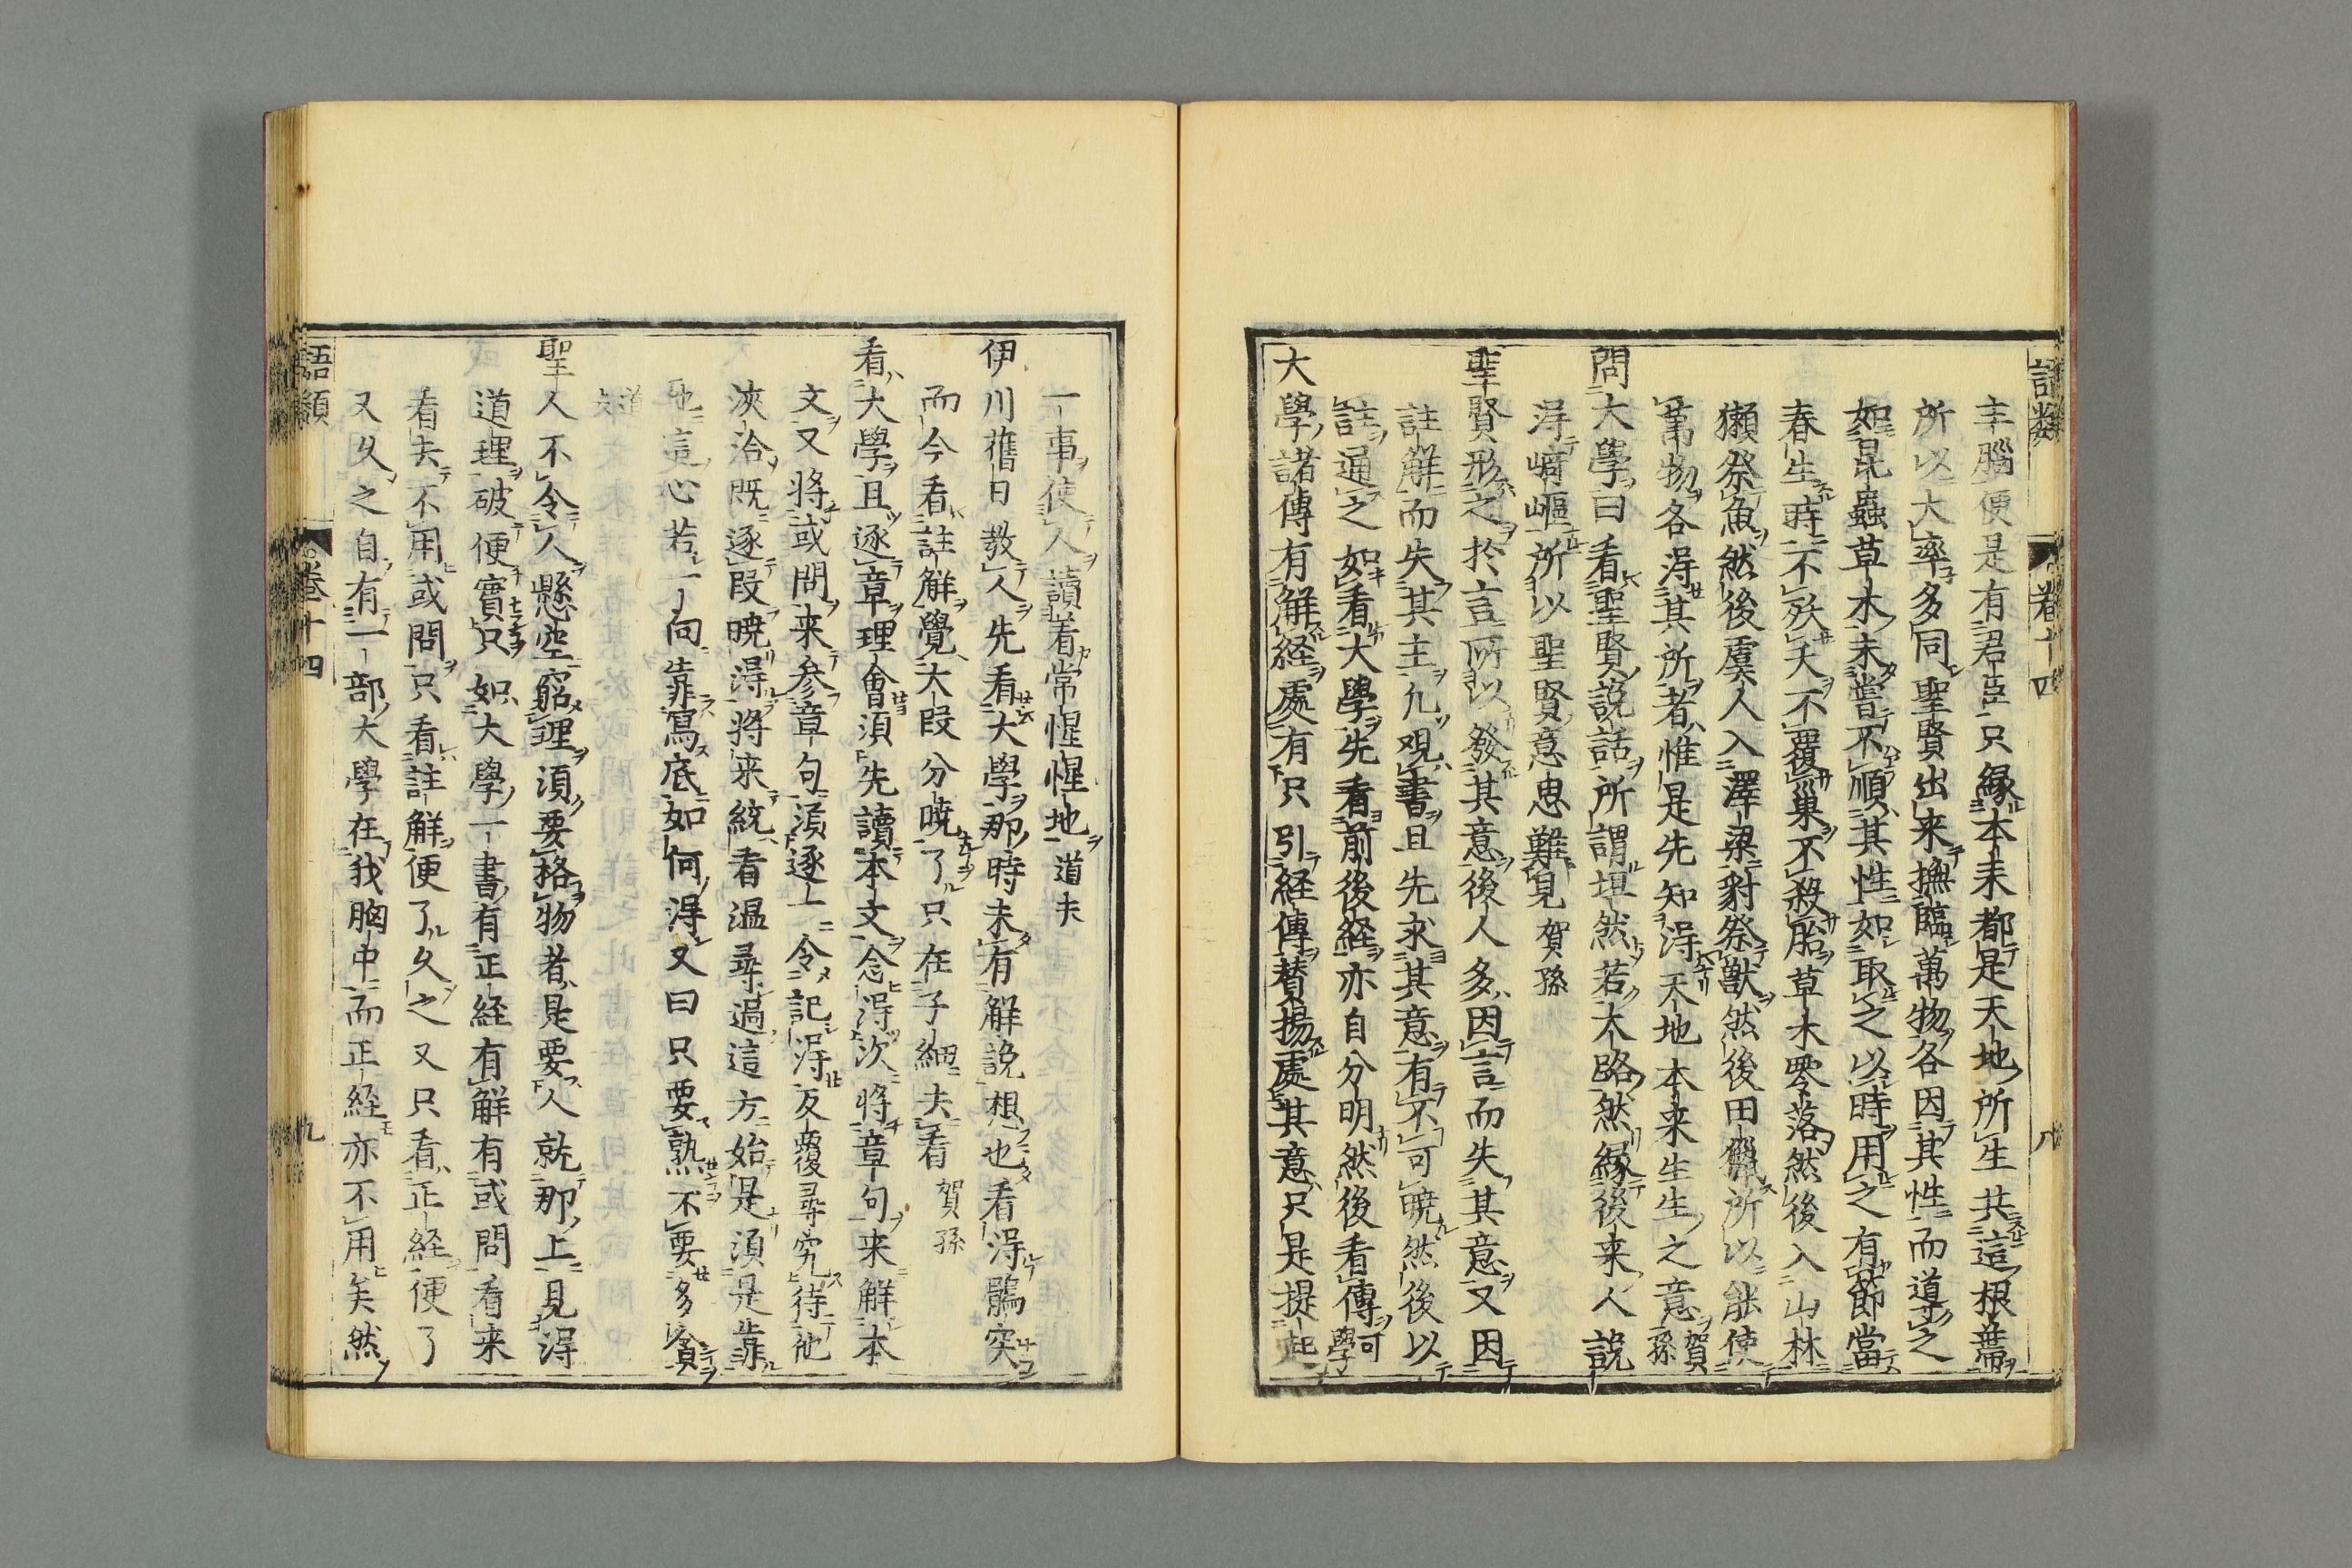 語類 卷十四 八
主腦便是有君臣只縁本来都是天地所生共這根蔕
所以大率多同聖賢出来撫臨萬物各因其性而道之
如昆蟲草木未嘗不順其性如取之以時用之有節當
春生時不殀夭不覆巢不殺胎草木零落然後入山林
獺祭魚然後虞人入澤梁豺祭獸然後田獵所以能使
萬物各淂其所者惟是先知淂天地本来生生之意賀孫
問大學曰看聖賢說話所謂坦然若大路然縁後来人說
淂﨑嶇所以聖賢意思難見賀孫
聖賢形之於言所以發其意後人多因言而失其意又因
註解而失其主凢觀書且先求其意有不可曉然後以
註通之如看大學先看前後経亦自分明然後看傳可學
大學諸傳有解経處有只引経傳賛揚處其意只是提起
一事使人讀著常惺惺地道夫
伊川舊日敎人先看大學那時未有解說想也看淂鶻突
而今看註解覺大段分曉了只在子細去看賀孫
看大學且逐章理會須先讀本文念淂次將章句来解本
文又將或問来参章句湏逐一令記淂反覆尋究待他
浹洽既逐段曉淂將来統看温尋過這方始是須是靠
他這心若一向靠寫底如何淂又曰只要熟不要多貪
道夫
聖人不令人懸空窮理須要格物者是要人就那上見淂
道理破便實只如大學一書有正経有解有或問看来
看去不用或問只看註解便了久之又只看正経便了
又久之自有一部大學在我胸中而正経亦不用矣然
語類 卷十四 九